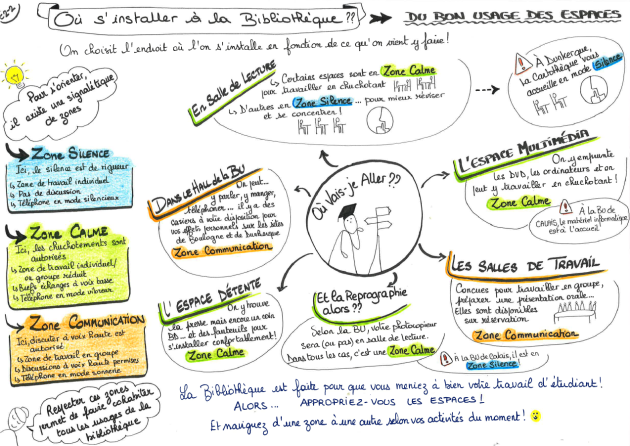 Où s'installer à la Bibliothèque ??
DU BON USAGE DES ESPACES
On choisit l'endroit où l'on s'installe en fonction de ce qu'on vient y faire !
Pour s'orienter,
il existe une signalétique
de zones
Zone SILENCE
Ici, le silence est de rigueur
Zone de travail individuel
Pas de discussion
Téléphone en mode silencieux
Zone CALME
Ici, les chuchotements sont
autorisés
Zone de travail individuel/
en groupe réduit
Brefs échanges à voix basse
Téléphone en mode vibreur
Zone COMMUNICATION
Ici, discuter à voix haute est
autorisé
Zone de travail en groupe
Discussions à voix haute permises
Téléphone en mode sonnerie
Respecter ces zones
permet de faire cohabiter
tous les usages de la
bibliothèque
En Salle de LECTURE
Certains espaces sont en Zone Calme
pour travailler en chuchotant
D'autres en Zone Silence ... pour mieux réviser
et se concentrer !
À Dunkerque,
la Cartothèque vous
accueille en mode Silence
DANS Le HALL de la BU
On peut...
y parler, y manger,
téléphoner... il y a des
casiers à votre disposition pour
vos effets personnels sur les sites
de Boulogne et de Dunkerque
Zone Communication
Où vais-je Aller ??
L'ESPACE MULTIMÉDIA
On y emprunte
les DVD, les ordinateurs et on
peut y travailler en chuchotant !
Zone CALME
À la BU de
CALAIS, le matériel informatique
est à l'accueil
L'ESPACE DÉTENTE
On y trouve
la presse mais encore un coin
BD... et des fauteuils pour
s'installer confortablement !
Zone CALME
Et la Reprographie
alors ??
Selon la BU, votre photocopieur
sera (ou pas) en salle de lecture.
Dans tous les cas, c'est une Zone CALME
LES SALLES DE TRAVAIL
Conçues pour travailler en groupe,
préparer une présentation orale...
Elles sont disponibles
sur réservation
Zone Communication
À la BU de Calais, il est en
Zone Silence !
La Bibliothèque est faite pour que vous meniez à bien votre travail d'étudiant !
ALORS... APPROPRIEZ-VOUS LES ESPACES !
Et naviguez d'une zone à une autre selon vos activités du moment !